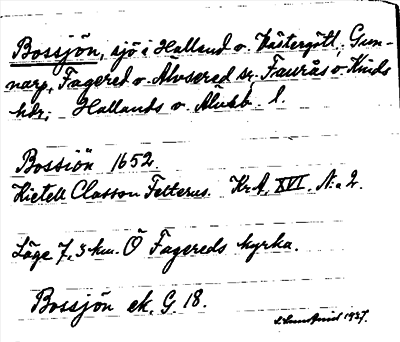 Bossjön, sjö i Halland o. Västergötl., Gun-
narp, Fagered o. Älvsered sr. Faurås o. Kinds
hdr, Hallands o. Älvsb. l.
Bossiön 1652.
Kietell Classon Felterus. Kr.A. XVI, N:a 2.
Läge 7,5 km. Ö Fagereds kyrka.
Bossjön ek. G. 18.
1937.